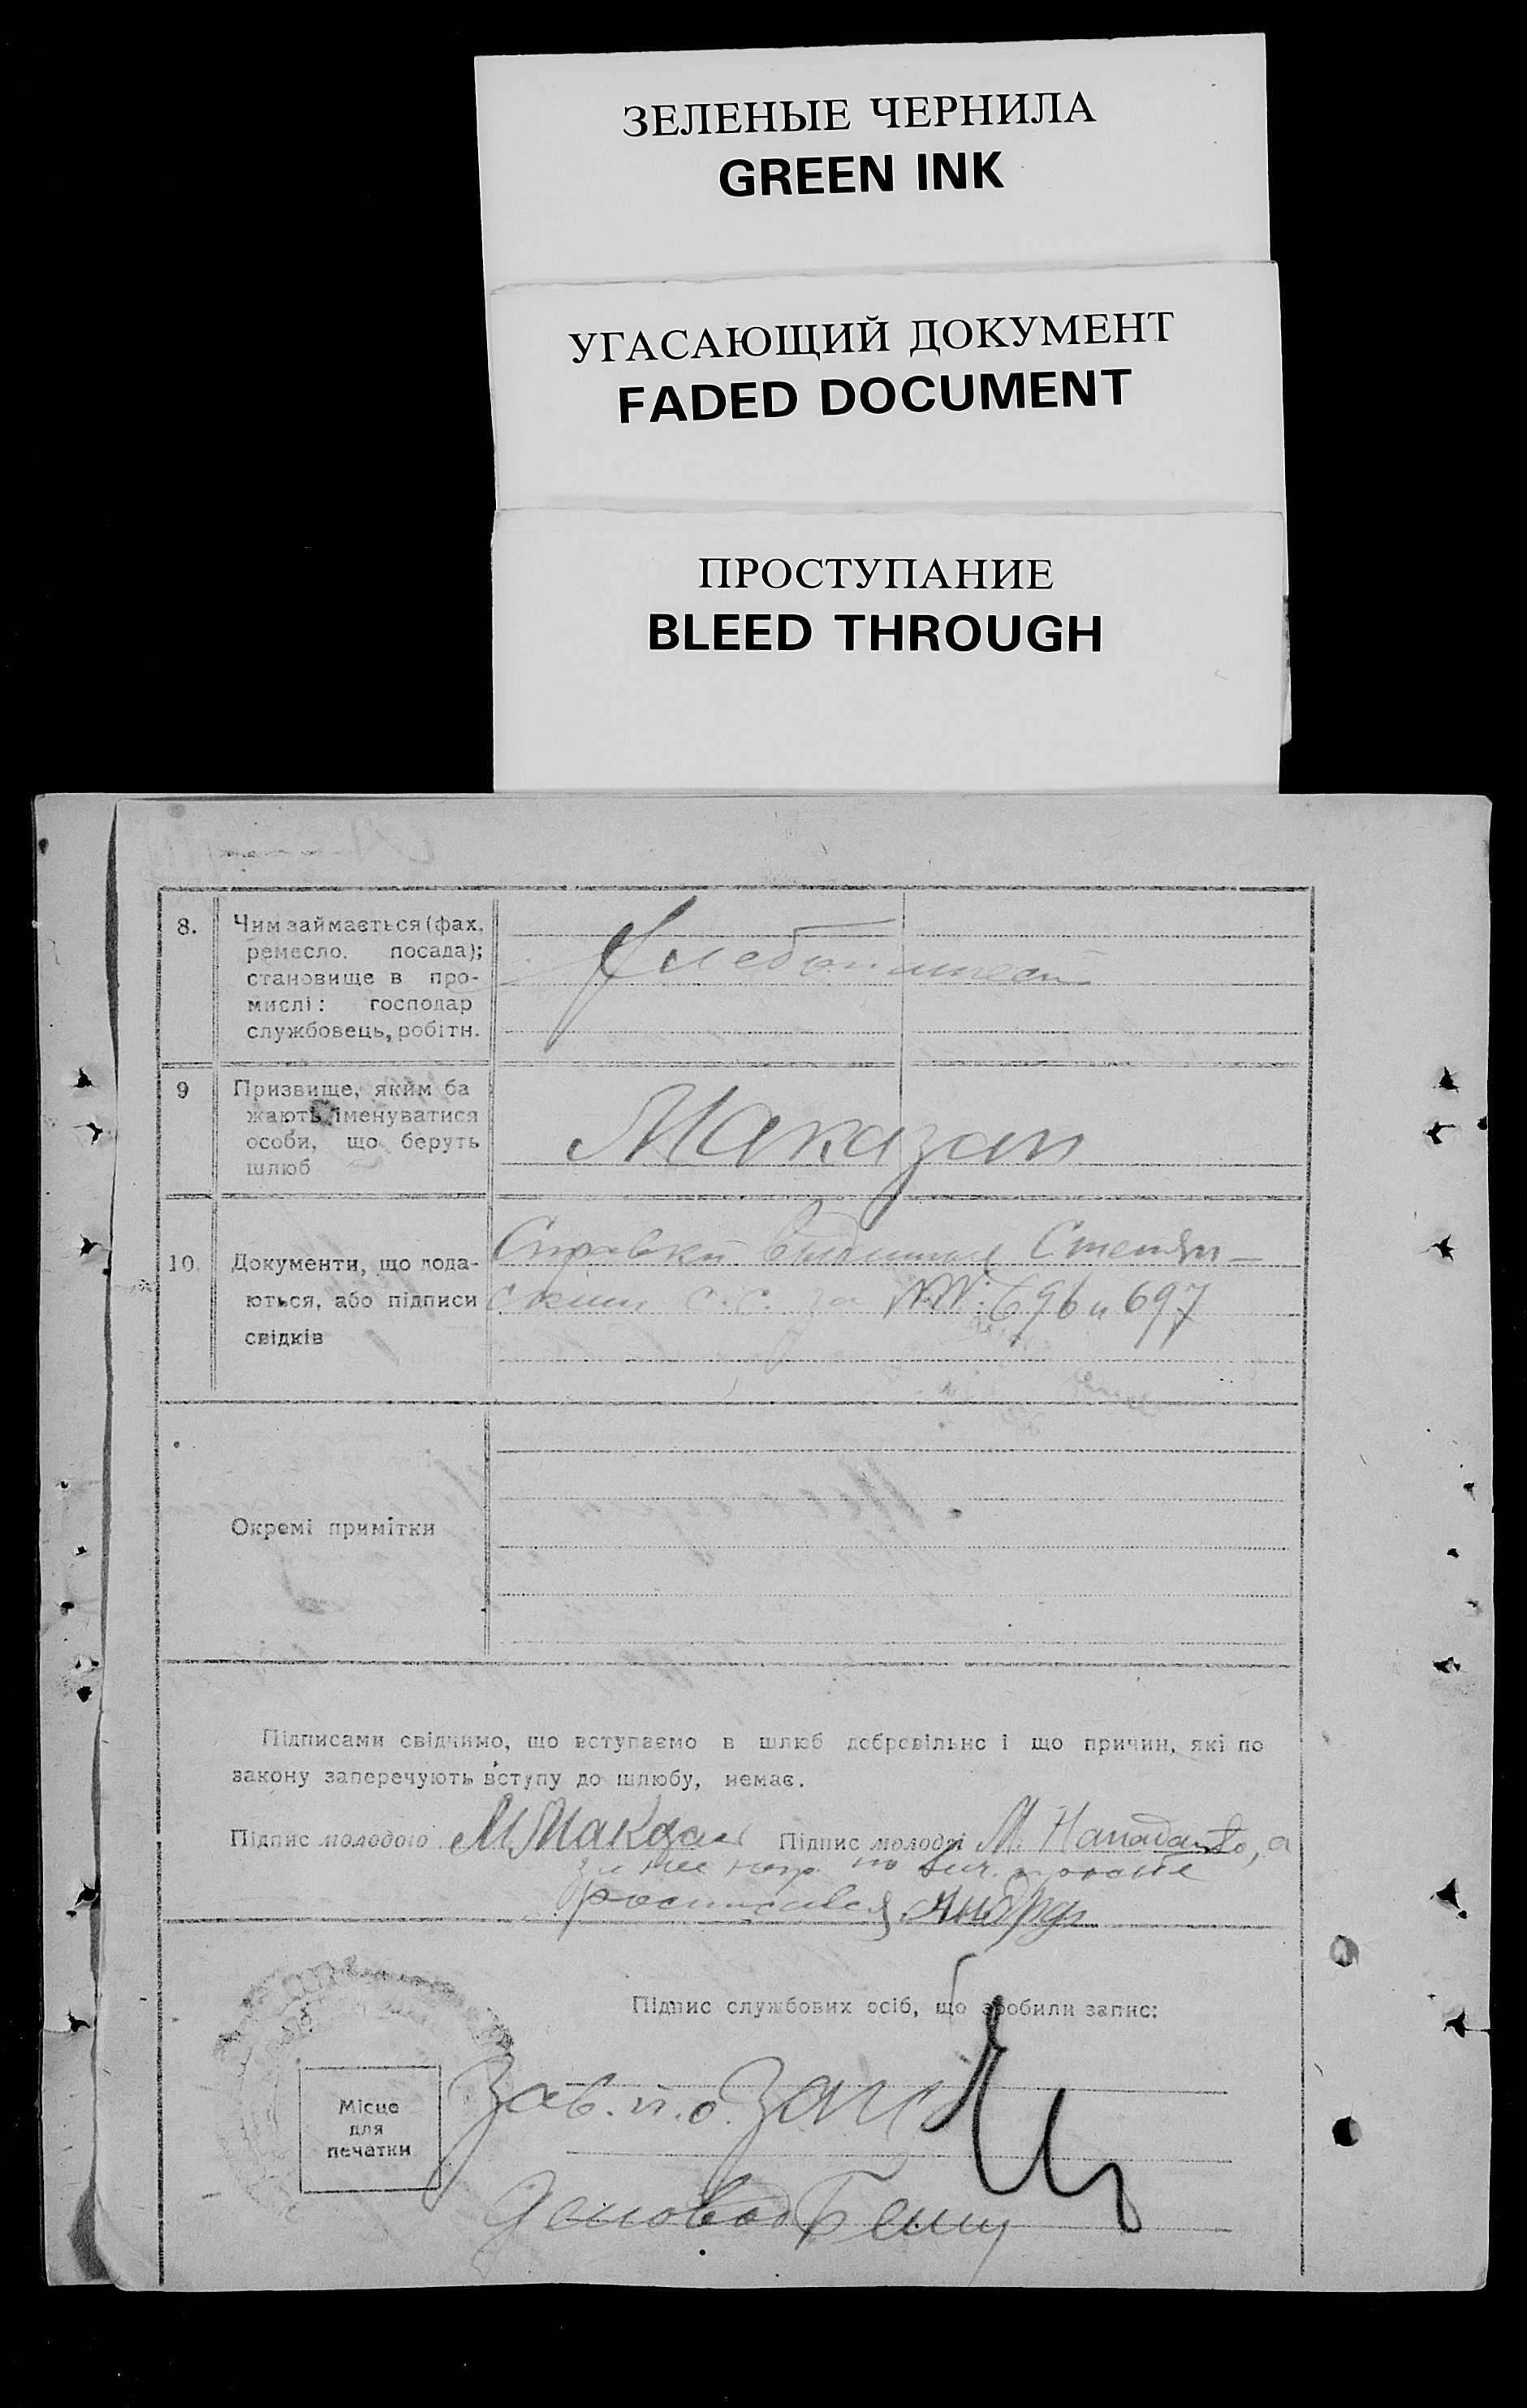 ЗЕЛЕНЫЕ ЧЕРНИЛА
GREEN INK
УГАСАЮЩИЙ ДОКУМЕНТ
FADED DOCUMENT
ПРОСТУПАНИЕ
BLEED THROUGH
8. Чим займається (фах,
ремесло, посада);
становище в про-
мислі: господар
службовець, робітн.
9 Призвище, яким ба
жають іменуватися
особи, що беруть
шлюб
Маказан
10. Документи, що пода-
ються, або підписи
свідків
Справки
с.с. за №№: 696 и 697
Окремі примітки
Підписами свідчимо, що вступаємо в шлюб добровільно і що причин, які по
закону заперечують вступу до шлюбу, немає.
Підпис молодого М. Маказан Підпис молодої М.
Підпис службових осіб, що зробили запис:
Місце
для
печатки
Зав. п.о. ЗАГС